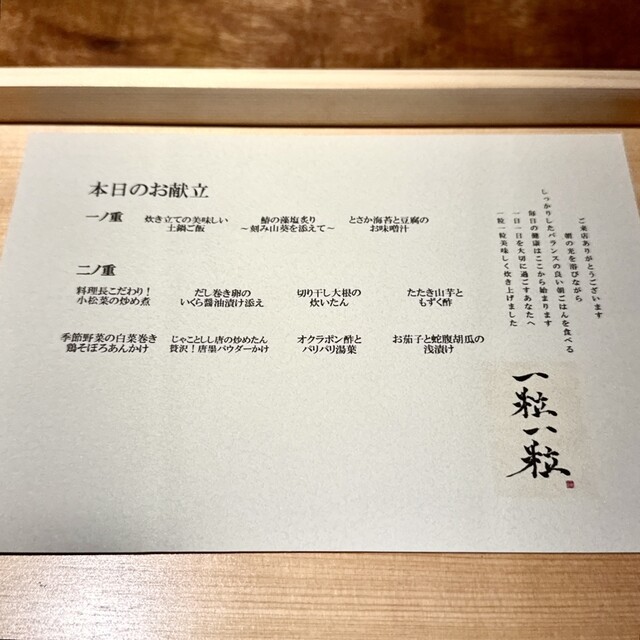 本日のお献立
一ノ重
炊き立ての美味しい
土鍋ご飯
鰆の藻塩炙り
～刻み山葵を添えて～
とさか海苔と豆腐の
お味噌汁
二ノ重
料理長こだわり！
小松菜の炒め煮
だし巻き卵の
いくら醤油漬け添え
切り干し大根の
炊いたん
たたき山芋と
もずく酢
季節野菜の白菜巻き
鶏そぼろあんかけ
じゃことしし唐の炒めたん
贅沢！唐墨パウダーかけ
オクラポン酢と
パリパリ湯葉
お茄子と蛇腹胡瓜の
浅漬け
ご来店ありがとうございます
朝の光を浴びながら
しっかりしたバランスの良い朝ごはんを食べる
毎日の健康はここから始まります
一日一日を大切に過ごすあなたへ
一粒一粒美味しく炊き上げました
一粒一粒